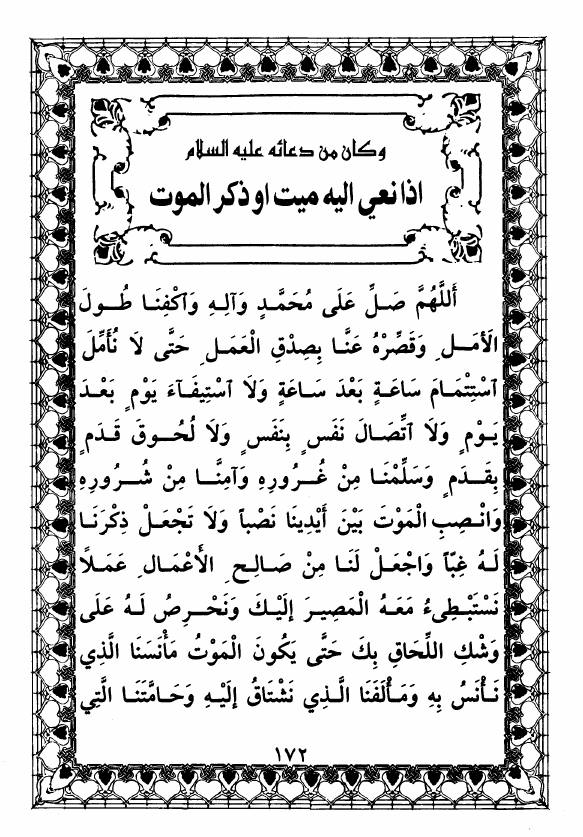 وكان من دعائه عليه السلام
اذا نعي اليه ميت او ذكر الموت
أَللَّهُمَّ صَلِّ عَلَى مُحَمَّدٍ وَآلِهِ وَاكْفِنَا طُولَ
الأمَلِ وَقَصِّرْهُ عَنَّا بِصِدْقِ الْعَمَلِ حَتَّى لَا نُأَمِّلَ
اسْتِتْمَامَ سَاعَةٍ بَعْدَ سَاعَةٍ وَلَا اسْتِيفَآءَ يَوْمٍ بَعْدَ
يَوْمٍ وَلَا اتِّصَالَ نَفَسٍ بِنَفَسٍ وَلَا لُحُوقَ قَدَمٍ
بِقَدَمٍ وَسَلِّمْنَا مِنْ غُرُورِهِ وَآمِنَّا مِنْ شُرُورِهِ
وَانْصِبِ الْمَوْتَ بَيْنَ أَيْدِينَا نَصْباً وَلَا تَجْعَلْ ذِكْرَنَا
لَهُ غِبّاً وَاجْعَلْ لَنَا مِنْ صَالِحِ الأَعْمَالِ عَمَلاً
نَسْتَبْطِىءُ مَعَهُ الْمَصِيرَ إِلَيْكَ وَنَحْرِصُ لَهُ عَلَى
وَشْكِ اللِّحَاقِ بِكَ حَتَّى يَكُونَ الْمَوْتُ مَأْنَسَنَا الَّذِي
نَأْنَسُ بِهِ وَمَأْلَفَنَا الَّذِي نَشْتَاقُ إِلَيْهِ وَحَامَّتَنَا الَّتِي
١٧٢